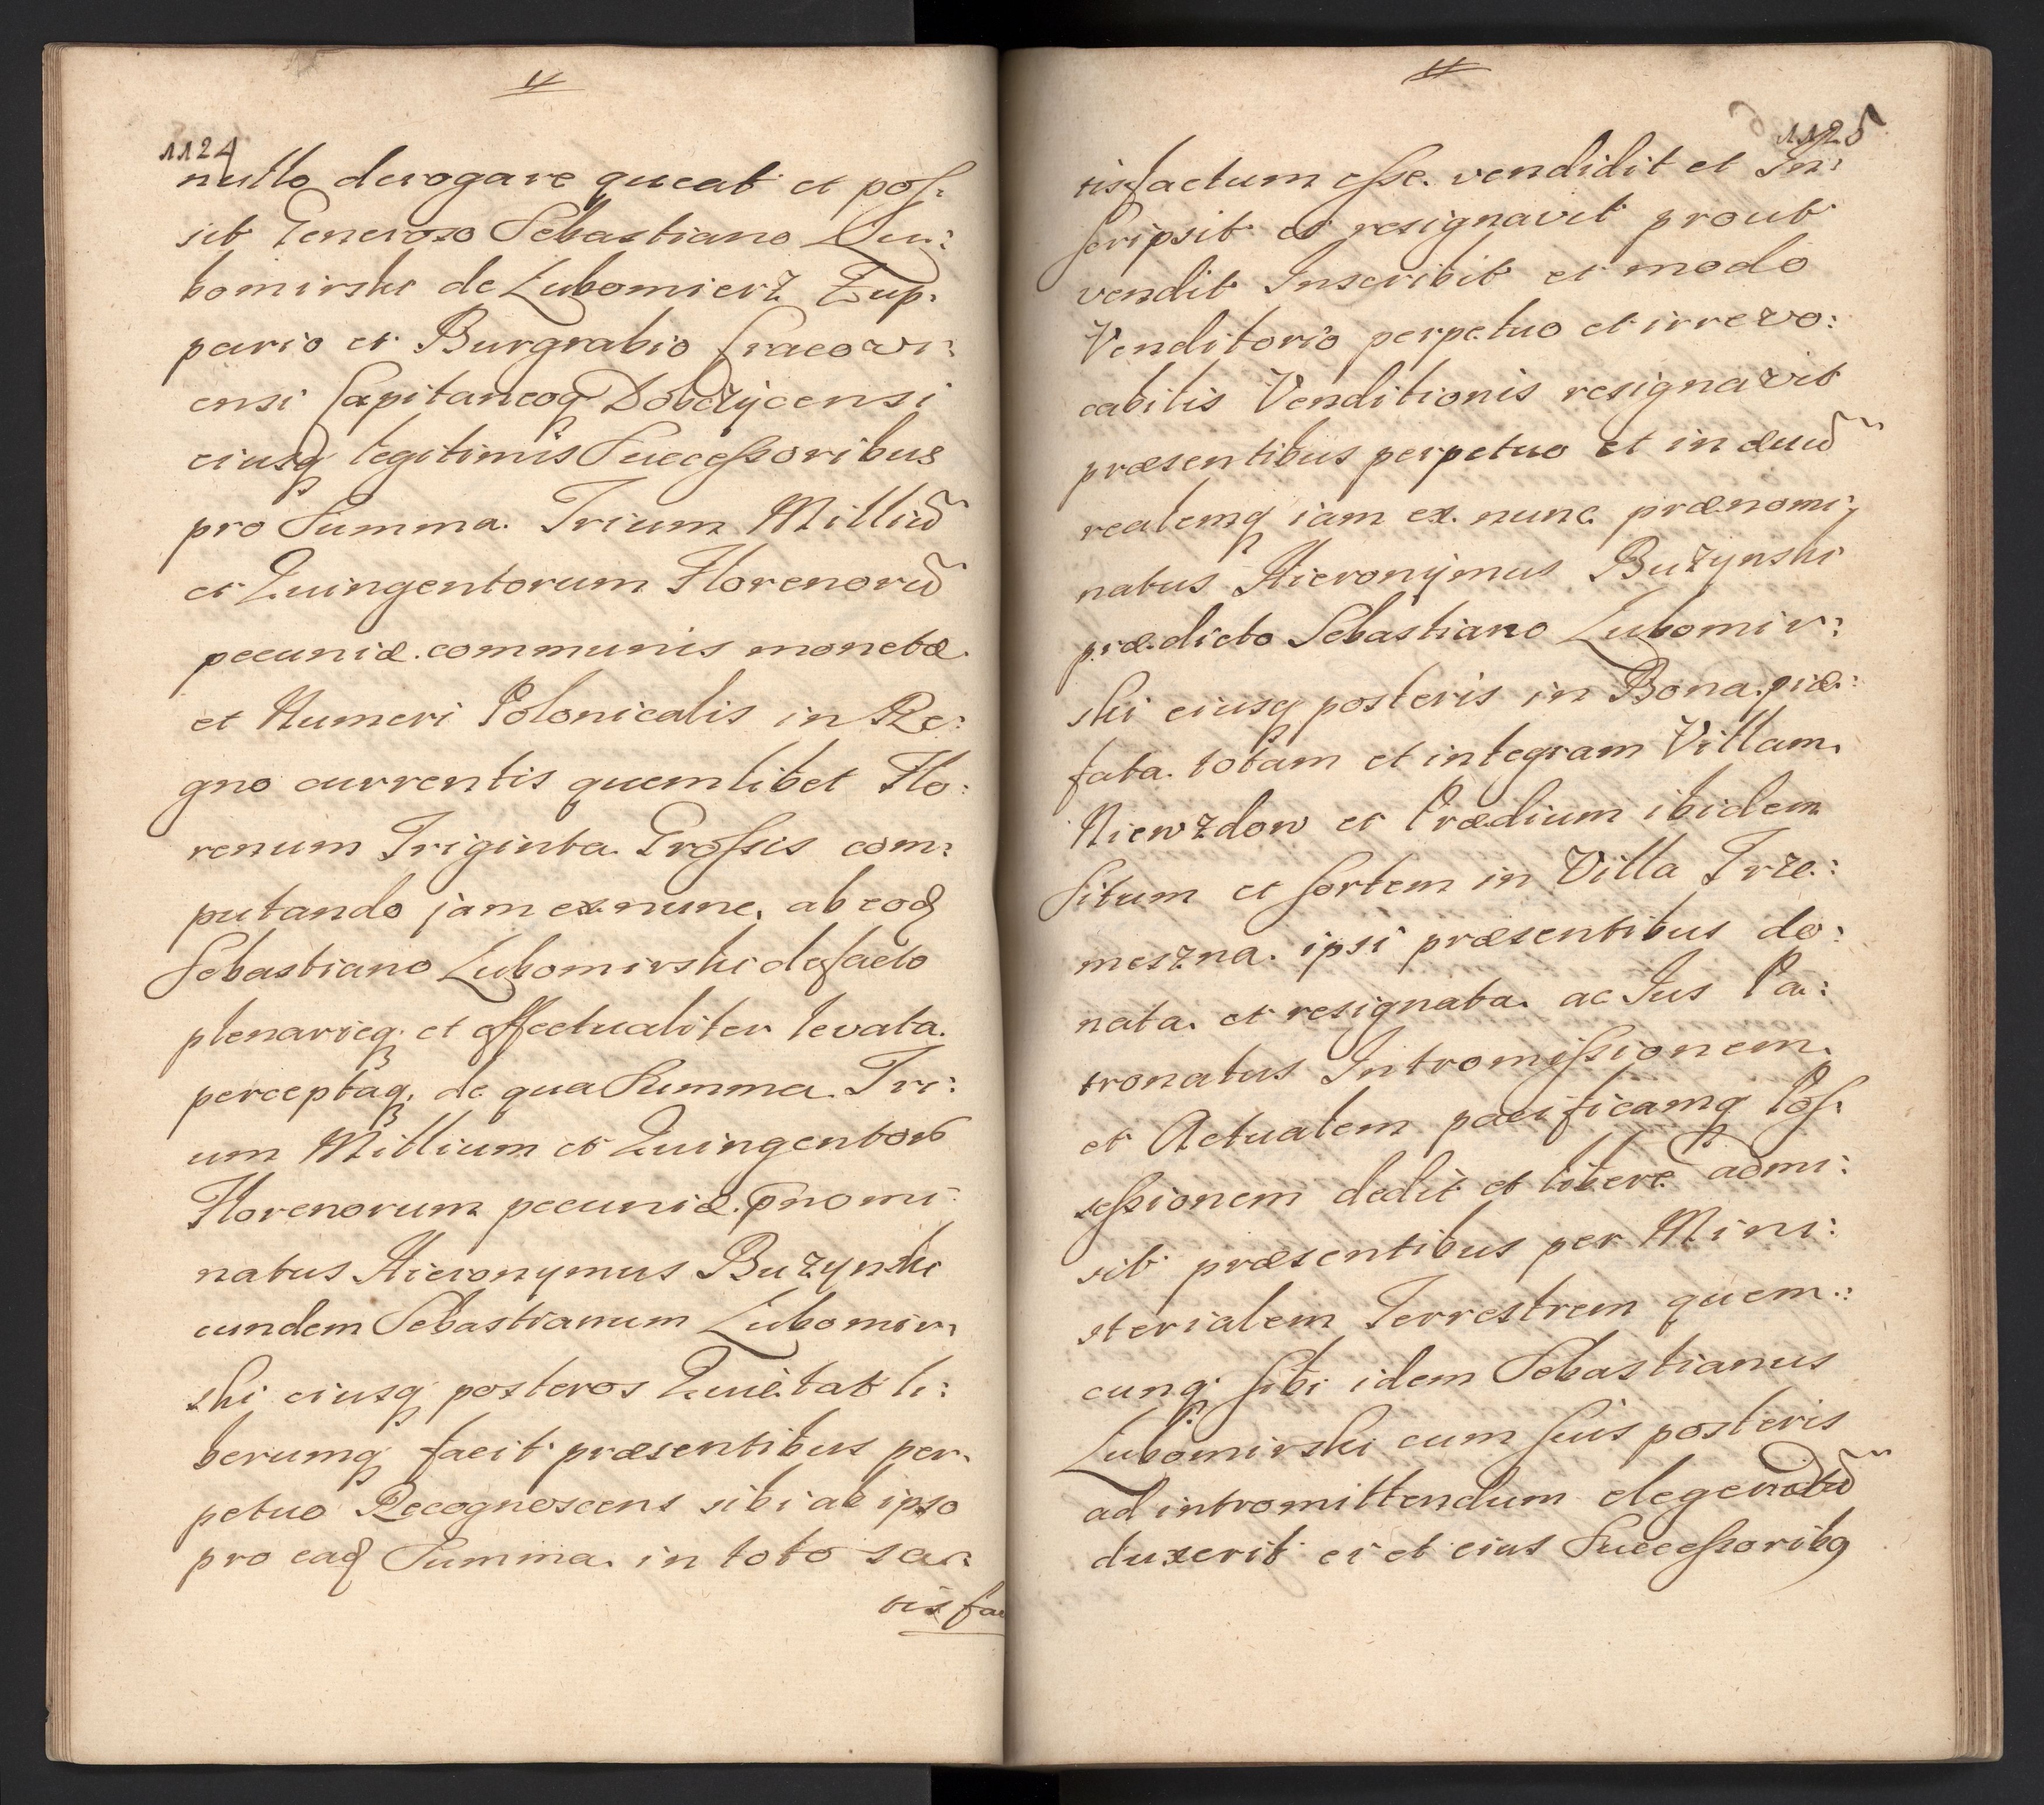 1124
nullo derogare queat et pos:
sit Generoso Sebastiano Lu:
bomirski de Lubomierz Zup:
pario et Burgrabio Cracovi:
ensi Capitaneoq Dobczycensi
eiusq legitimis Successoribus
pro Summa Trium Milliu͂
et Quingentorum Florenoru͂
pecuniæ communis monetæ
et Numeri Polonicalis in Re:
gno currentis quemlibet Flo:
renum Triginta Grossis com:
putando jam ex nunc ab eod
Sebastiano Lubomirski de facto
plenarieq et effectualiter levata
perceptaq, de qua Summa Tri:
um Millium et Quingentor
Florenorum pecuniæ pnomi:
natus Hieronymus Buzynski
eundem Sebastianum Lubomir:
ski eiusq posteros Quietat li:
berumq facit præsentibus per:
petuo Recognoscens sibi ab ipso
pro ead Summa in toto sa:
tisfac
1125
tisfactum esse vendidit et In:
scripsit et resignavit prout
vendit Inscribit et modo
Venditorio perpetuo et irrevo:
cabilis Venditionis resignavit
præsentibus perpetuo et in ævu͂
realemq iam ex nunc prænomi:
natus Hieronÿmus Buzynski
prædicto Sebastiano Lubomir:
ski eiusq posteris in Bona præ:
fata totam et integram Villam
Niewzdow et Prædium ibidem
situm et sortem in Villa Trze:
meszna ipsi præsentibus do:
nata et resignata ac Jus Pa:
tronatus Intromissionem
et Actualem pacificamq Pos:
sessionem dedit et libere admi:
sit præsentibus per Mini:
sterialem Terrestrem quem:
cunq sibi idem Sebastianus
Lubomirski cum suis posteris
ad intromittendum
duxerit ei et eius Successoribq